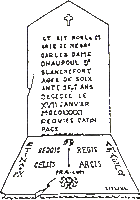 CT GIT NOBLe M
ARIE DE NEGRe
DARLES DAME
DHAUPOUL De
BLANCHEFORT
AGEE DE SOIX
ANTE SEpT ANS
DECEDEE LE
XVII JANVIER
MDCOLXXXI
REQUIES CATIN
PACE
REDDIS REGIS
CELLIS ARCIS
PRÆ-CUM